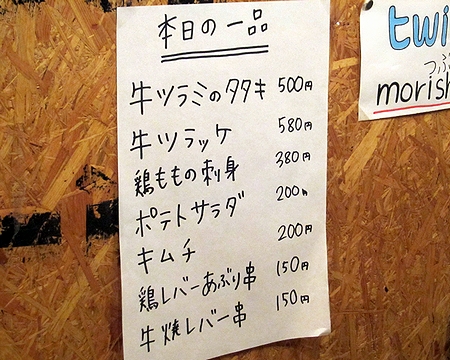 本日の一品
牛ツラミのタタキ 500円
牛ツラッケ 580円
鶏ももの刺身 380円
ポテトサラダ 200円
キムチ 200円
鶏レバーあぶり串 150円
牛焼レバー串 150円
twi
つぶ
morish